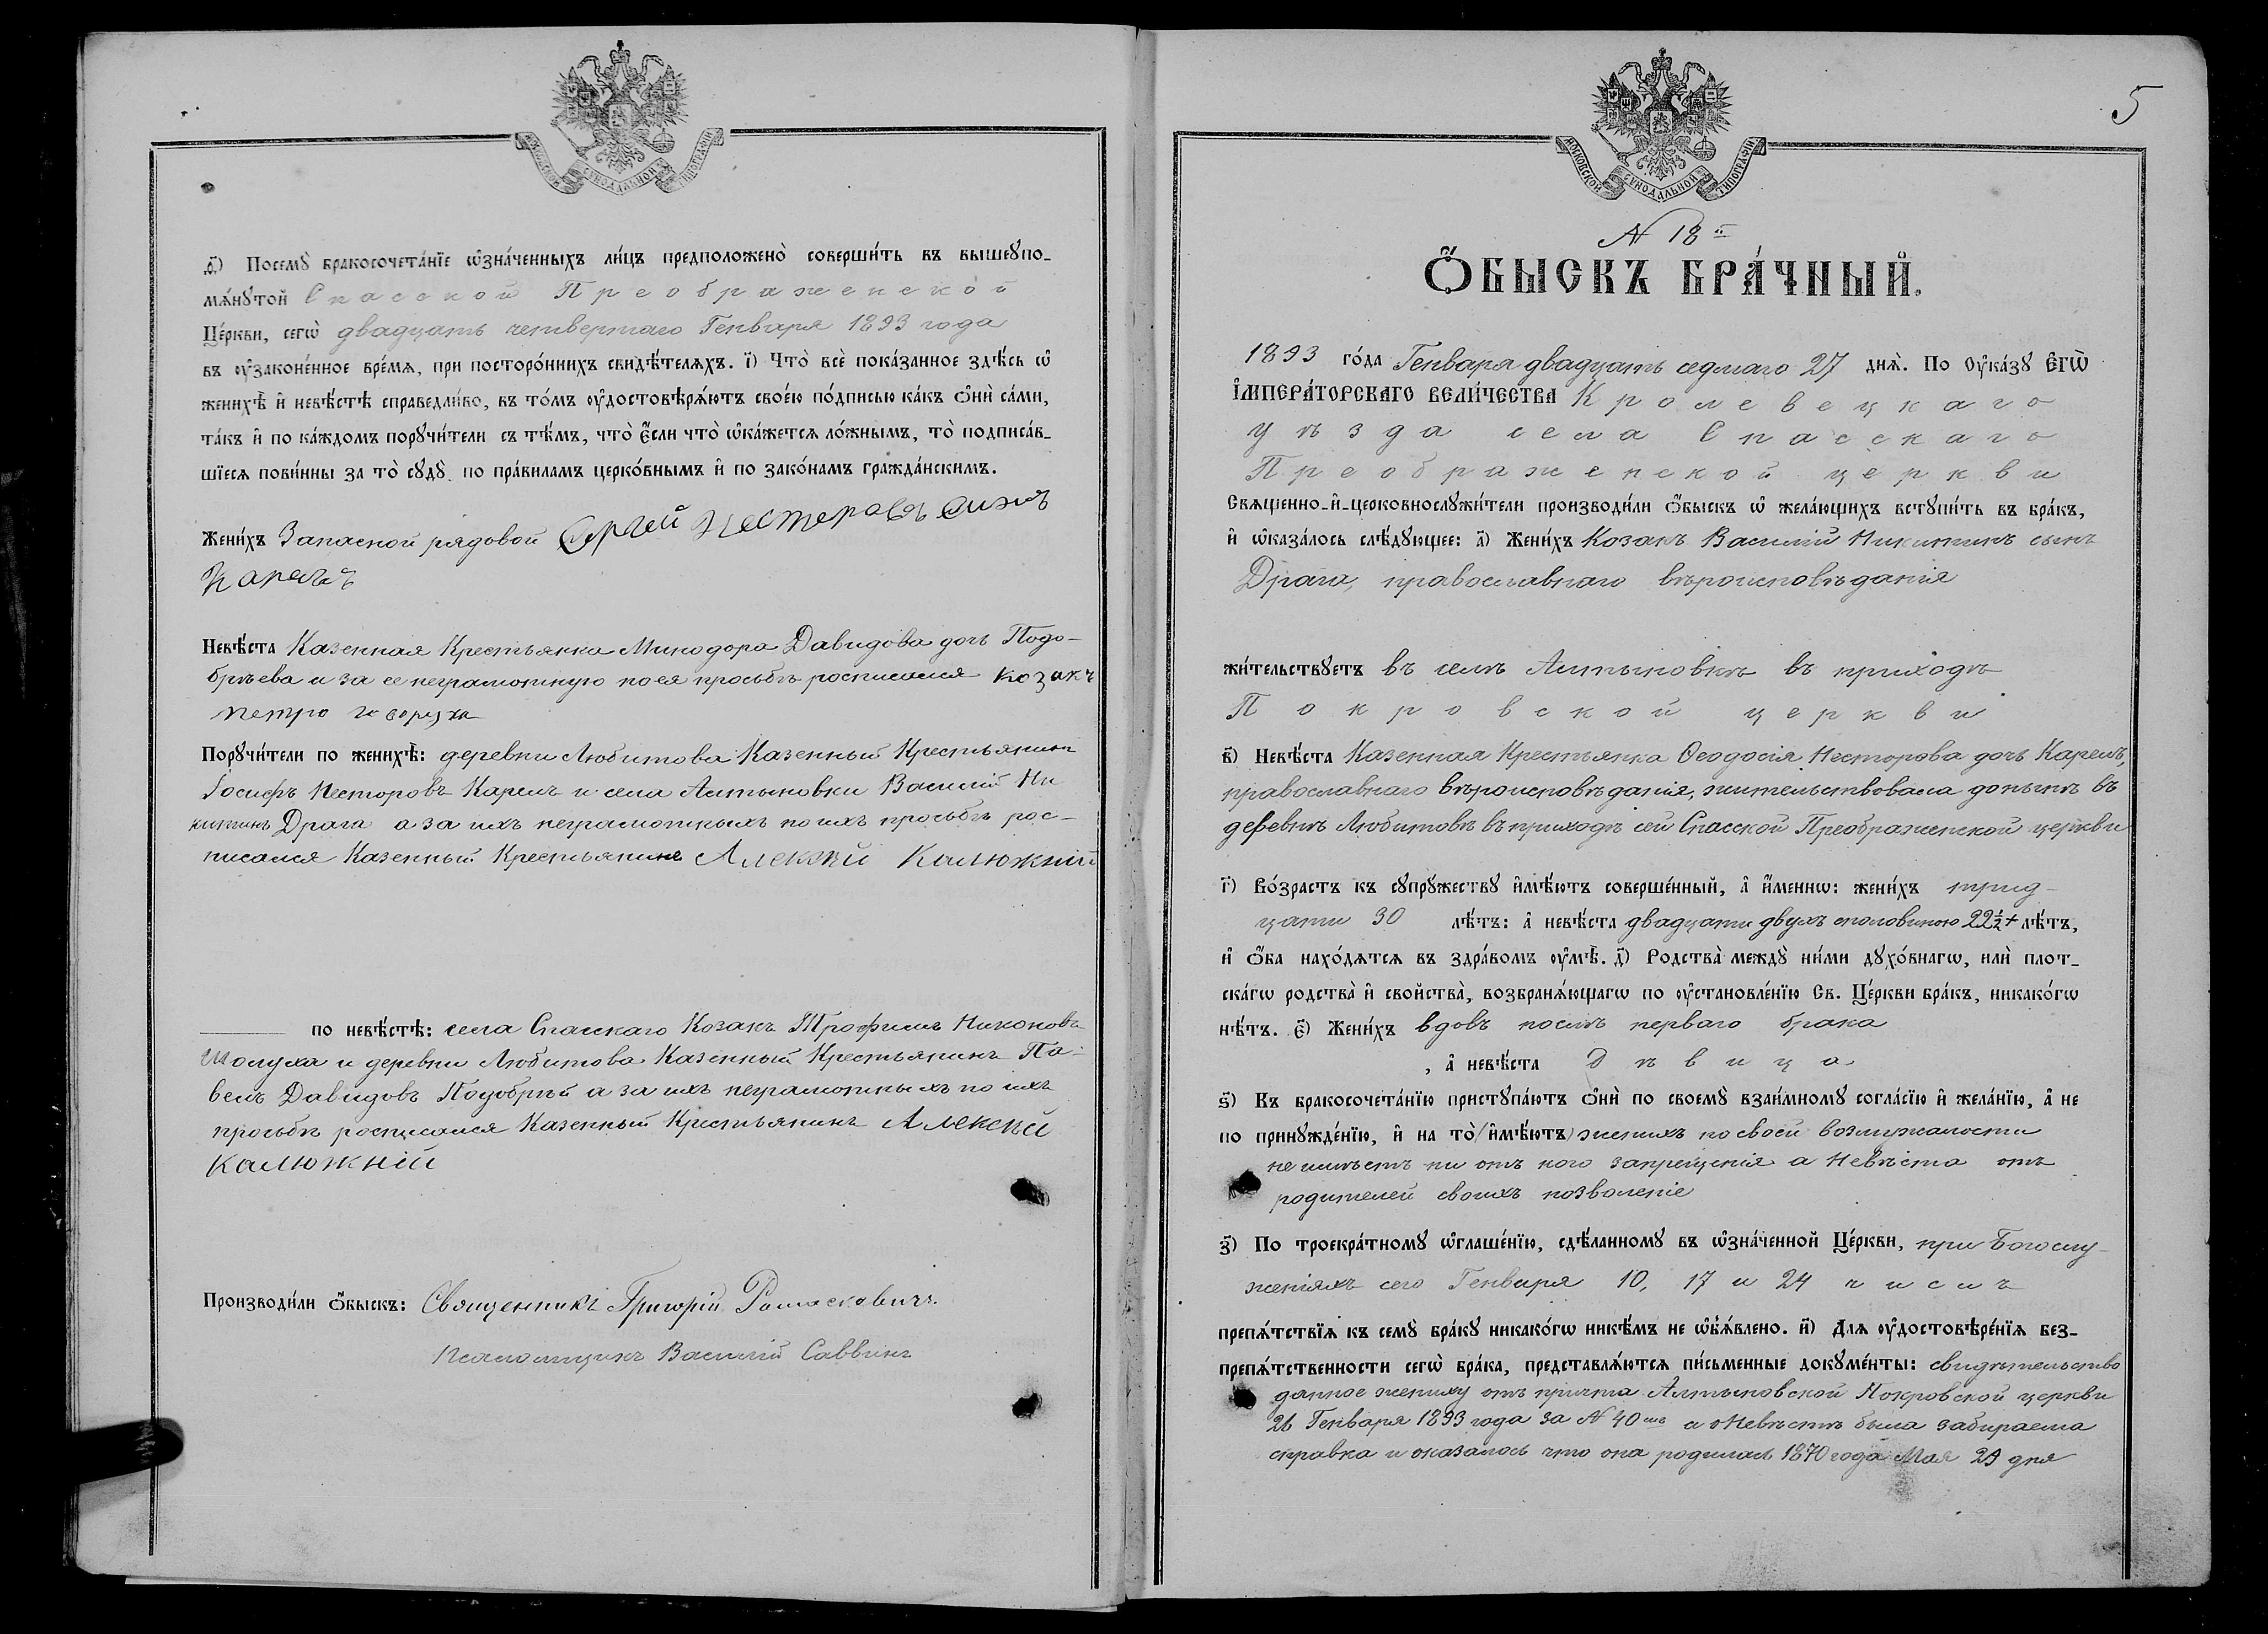 МОСКОВСКОЙ СѴНОДАЛЬНОЙ ТИПОГРАФІИ
ѳ҃) Посемꙋ̀ бракосочета́нїе ѡ҆зна́ченныхъ ли́цъ предположено̀ соверши́ть въ вышеꙋпо-
мѧ́нꙋтой Спасской Преображенской
Це́ркви, сегѡ̀ двадцать четвертаго Генваря 1893 года
въ ᲂу҆законе́нное вре́мѧ, при посторо́ннихъ свидѣ́телѧхъ. і҃) Что̀ всѐ пока́занное здѣ́сь ѡ҆
женихѣ̀ и҆ невѣ́стѣ справедли́во, въ то́мъ ᲂу҆достовѣрѧ́ютъ свое́ю по́дписью ка́къ ѻ҆нѝ са́ми,
та́къ и҆ по ка́ждомъ порꙋчи́тели съ тѣ́мъ, что̀ є҆́сли что̀ ѡ҆ка́жетсѧ ло́жнымъ, то̀ подписа́в-
шїесѧ пови́нны за то̀ сꙋдꙋ̀ по пра́виламъ церко́внымъ и҆ по зако́намъ гражда́нскимъ.
Жени́хъ Запасной рядовой Сргей Нестеравъ Синъ
Карелъ
Невѣ́ста Казенная Крестьянка Минодора Давидова дочь Подо-
брѣева и за ее неграмотную по ея просьбѣ росписался козакъ
петро
Порꙋчи́тели по женихѣ̀: деревни Любитова Казенный Крестьянинъ
Іосифъ Несторовъ Карелъ и села Алтыновки Василій Ни
китинъ Драга а за ихъ неграмотныхъ по ихъ просьбѣ рос-
писался Казенный Крестьянинъ Алексѣй Калюжній
по невѣ́стѣ: села Спасскаго Козакъ Трофимъ Никоновъ
Шолуха и деревни Любитова Казенный Крестьянинъ Па-
велъ Давидовъ Подобрѣй а за ихъ неграмотныхъ по ихъ
просьбѣ росписался Казенный Крестьянинъ Алексѣй
Калюжній
Производи́ли ѻ҆́быскъ: Священникъ Григорій Ромаскевичъ.
Псаломщикъ Василій Саввинъ
5
МОСКОВСКОЙ СѴНОДАЛЬНОЙ ТИПОГРАФІИ
№ 18й
Ѻ҆́БЫСКЪ БРА́ЧНЫЙ.
1893 го́да Генваря двадцать седмаго 27 днѧ̀. По Оу҆ка́зꙋ Є҆ГѠ̀
І҆МПЕРА́ТОРСКАГО ВЕЛИ́ЧЕСТВА Кролевецкаго
уѣзда села Спасскаго
Преображенской церкви
Свѧщенно-и҆-церковнослꙋжи́тели производи́ли ѻ҆́быскъ ѡ҆ жела́ющихъ встꙋпи́ть въ бра́къ,
и҆ ѡ҆каза́лось слѣ́дꙋющее: а҃) Жени́хъ Козакъ Василій Никитинъ сынъ
Драга, православнаго вѣроисповѣданія
жи́тельствꙋетъ въ селѣ Алтыновкѣ въ приходѣ
Покровской церкви
в҃) Невѣ́ста Казенная Крестьянка Ѳеодосія Несторова дочь Карелъ,
православнаго вѣроисповѣданія, жительствовала донынѣ въ
деревнѣ Любитовѣ въ приходѣ сей Спасской Преображенской церкви
г҃) Во́зрастъ къ сꙋпрꙋ́жествꙋ и҆мѣ́ютъ соверше́нный, а҆ и҆́меннѡ: жени́хъ трид-
цати 30 лѣ́тъ: а҆ невѣ́ста двадцати двухъ споловиною 22½ + лѣ́тъ,
и҆ ѻ҆́ба нахо́дѧтсѧ въ здра́вомъ ᲂу҆мѣ̀. д҃) Родства̀ междꙋ̀ ни́ми дꙋхо́внагѡ, илѝ плот-
ска́гѡ родства̀ и҆ свойства̀, возбранѧ́ющагѡ по ᲂу҆становле́нїю Св. Це́ркви бра́къ, никако́гѡ
нѣ́тъ. є҃) Жени́хъ вдовъ послѣ перваго брака
, а҆ невѣ́ста Дѣвица
ѕ҃) Къ бракосочета́нїю пристꙋпа́ютъ ѻ҆нѝ по своемꙋ̀ взаи́мномꙋ согла́сїю и҆ жела́нїю, а҆ не
по принꙋжде́нїю, и҆ на то̀ (и҆мѣ́ютъ) женихъ по своей возмужалости
не имѣетъ ни отъ кого запрещенія а Невѣста отъ
родителей своихъ позволеніе
з҃) По троекра́тномꙋ ѡ҆глаше́нїю, сдѣ́ланномꙋ въ ѡ҆зна́ченной Це́ркви, при Богослу-
женіяхъ сего Генваря 10, 17 и 24 числъ
препѧ́тствїѧ къ семꙋ̀ бра́кꙋ никако́гѡ никѣ́мъ не ѡ҆б̾ѧ́влено. и҃) Для ᲂу҆достовѣре́нїѧ без-
препѧ́тственности сегѡ̀ бра́ка, представлѧ́ютсѧ пи́сьменные докꙋме́нты: свидѣтельство
данное жениху отъ причта Алтыновской Покровской церкви
26 Генваря 1893 года за № 40мъ а о Невѣстѣ была забираема
справка и оказалось что она родилась 1870 года Мая 29 дня